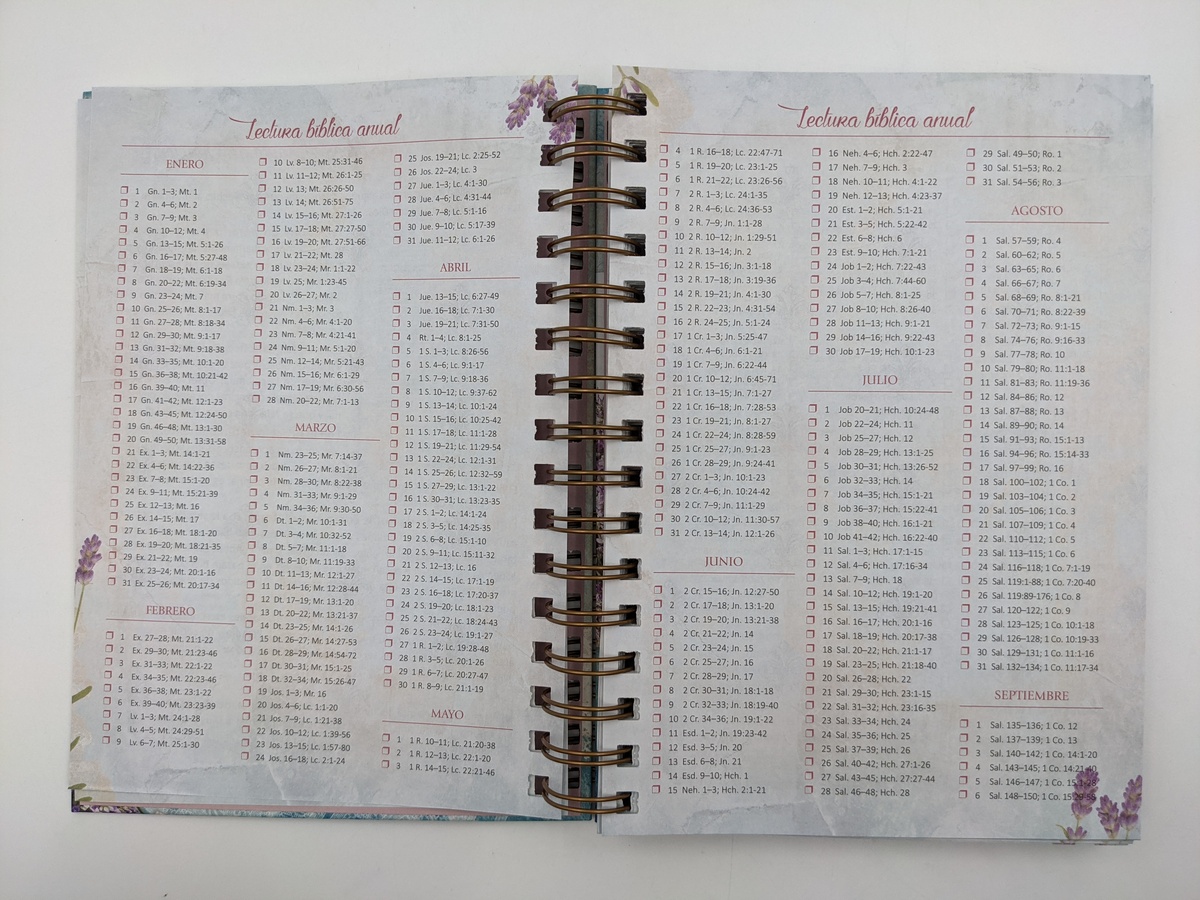 Lectura bíblica anual
ENERO
1 Gn. 1–3; Mt. 1
2 Gn. 4–6; Mt. 2
3 Gn. 7–9; Mt. 3
4 Gn. 10–12; Mt. 4
5 Gn. 13–15; Mt. 5:1-26
6 Gn. 16–17; Mt. 5:27-48
7 Gn. 18–19; Mt. 6:1-18
8 Gn. 20–22; Mt. 6:19-34
9 Gn. 23–24; Mt. 7
10 Gn. 25–26; Mt. 8:1-17
11 Gn. 27–28; Mt. 8:18-34
12 Gn. 29–30; Mt. 9:1-17
13 Gn. 31–32; Mt. 9:18-38
14 Gn. 33–35; Mt. 10:1-20
15 Gn. 36–38; Mt. 10:21-42
16 Gn. 39–40; Mt. 11
17 Gn. 41–42; Mt. 12:1-23
18 Gn. 43–45; Mt. 12:24-50
19 Gn. 46–48; Mt. 13:1-30
20 Gn. 49–50; Mt. 13:31-58
21 Ex. 1–3; Mt. 14:1-21
22 Ex. 4–6; Mt. 14:22-36
23 Ex. 7–8; Mt. 15:1-20
24 Ex. 9–11; Mt. 15:21-39
25 Ex. 12–13; Mt. 16
26 Ex. 14–15; Mt. 17
27 Ex. 16–18; Mt. 18:1-20
28 Ex. 19–20; Mt. 18:21-35
29 Ex. 21–22; Mt. 19
30 Ex. 23–24; Mt. 20:1-16
31 Ex. 25–26; Mt. 20:17-34
FEBRERO
1 Ex. 27–28; Mt. 21:1-22
2 Ex. 29–30; Mt. 21:23-46
3 Ex. 31–33; Mt. 22:1-22
4 Ex. 34–35; Mt. 22:23-46
5 Ex. 36–38; Mt. 23:1-22
6 Ex. 39–40; Mt. 23:23-39
7 Lv. 1–3; Mt. 24:1-28
8 Lv. 4–5; Mt. 24:29-51
9 Lv. 6–7; Mt. 25:1-30
10 Lv. 8–10; Mt. 25:31-46
11 Lv. 11–12; Mt. 26:1-25
12 Lv. 13; Mt. 26:26-50
13 Lv. 14; Mt. 26:51-75
14 Lv. 15–16; Mt. 27:1-26
15 Lv. 17–18; Mt. 27:27-50
16 Lv. 19–20; Mt. 27:51-66
17 Lv. 21–22; Mt. 28
18 Lv. 23–24; Mr. 1:1-22
19 Lv. 25; Mr. 1:23-45
20 Lv. 26–27; Mr. 2
21 Nm. 1–3; Mr. 3
22 Nm. 4–6; Mr. 4:1-20
23 Nm. 7–8; Mr. 4:21-41
24 Nm. 9–11; Mr. 5:1-20
25 Nm. 12–14; Mr. 5:21-43
26 Nm. 15–16; Mr. 6:1-29
27 Nm. 17–19; Mr. 6:30-56
28 Nm. 20–22; Mr. 7:1-13
MARZO
1 Nm. 23–25; Mr. 7:14-37
2 Nm. 26–27; Mr. 8:1-21
3 Nm. 28–30; Mr. 8:22-38
4 Nm. 31–33; Mr. 9:1-29
5 Nm. 34–36; Mr. 9:30-50
6 Dt. 1–2; Mr. 10:1-31
7 Dt. 3–4; Mr. 10:32-52
8 Dt. 5–7; Mr. 11:1-18
9 Dt. 8–10; Mr. 11:19-33
10 Dt. 11–13; Mr. 12:1-27
11 Dt. 14–16; Mr. 12:28-44
12 Dt. 17–19; Mr. 13:1-20
13 Dt. 20–22; Mr. 13:21-37
14 Dt. 23–25; Mr. 14:1-26
15 Dt. 26–27; Mr. 14:27-53
16 Dt. 28–29; Mr. 14:54-72
17 Dt. 30–31; Mr. 15:1-25
18 Dt. 32–34; Mr. 15:26-47
19 Jos. 1–3; Mr. 16
20 Jos. 4–6; Lc. 1:1-20
21 Jos. 7–9; Lc. 1:21-38
22 Jos. 10–12; Lc. 1:39-56
23 Jos. 13–15; Lc. 1:57-80
24 Jos. 16–18; Lc. 2:1-24
25 Jos. 19–21; Lc. 2:25-52
26 Jos. 22–24; Lc. 3
27 Jue. 1–3; Lc. 4:1-30
28 Jue. 4–6; Lc. 4:31-44
29 Jue. 7–8; Lc. 5:1-16
30 Jue. 9–10; Lc. 5:17-39
31 Jue. 11–12; Lc. 6:1-26
ABRIL
1 Jue. 13–15; Lc. 6:27-49
2 Jue. 16–18; Lc. 7:1-30
3 Jue. 19–21; Lc. 7:31-50
4 Rt. 1–4; Lc. 8:1-25
5 1 S. 1–3; Lc. 8:26-56
6 1 S. 4–6; Lc. 9:1-17
7 1 S. 7–9; Lc. 9:18-36
8 1 S. 10–12; Lc. 9:37-62
9 1 S. 13–14; Lc. 10:1-24
10 1 S. 15–16; Lc. 10:25-42
11 1 S. 17–18; Lc. 11:1-28
12 1 S. 19–21; Lc. 11:29-54
13 1 S. 22–24; Lc. 12:1-31
14 1 S. 25–26; Lc. 12:32-59
15 1 S. 27–29; Lc. 13:1-22
16 1 S. 30–31; Lc. 13:23-35
17 2 S. 1–2; Lc. 14:1-24
18 2 S. 3–5; Lc. 14:25-35
19 2 S. 6–8; Lc. 15:1-10
20 2 S. 9–11; Lc. 15:11-32
21 2 S. 12–13; Lc. 16
22 2 S. 14–15; Lc. 17:1-19
23 2 S. 16–18; Lc. 17:20-37
24 2 S. 19–20; Lc. 18:1-23
25 2 S. 21–22; Lc. 18:24-43
26 2 S. 23–24; Lc. 19:1-27
27 1 R. 1–2; Lc. 19:28-48
28 1 R. 3–5; Lc. 20:1-26
29 1 R. 6–7; Lc. 20:27-47
30 1 R. 8–9; Lc. 21:1-19
MAYO
1 1 R. 10–11; Lc. 21:20-38
2 1 R. 12–13; Lc. 22:1-20
3 1 R. 14–15; Lc. 22:21-46
Lectura bíblica anual
4 1 R. 16–18; Lc. 22:47-71
5 1 R. 19–20; Lc. 23:1-25
6 1 R. 21–22; Lc. 23:26-56
7 2 R. 1–3; Lc. 24:1-35
8 2 R. 4–6; Lc. 24:36-53
9 2 R. 7–9; Jn. 1:1-28
10 2 R. 10–12; Jn. 1:29-51
11 2 R. 13–14; Jn. 2
12 2 R. 15–16; Jn. 3:1-18
13 2 R. 17–18; Jn. 3:19-36
14 2 R. 19–21; Jn. 4:1-30
15 2 R. 22–23; Jn. 4:31-54
16 2 R. 24–25; Jn. 5:1-24
17 1 Cr. 1–3; Jn. 5:25-47
18 1 Cr. 4–6; Jn. 6:1-21
19 1 Cr. 7–9; Jn. 6:22-44
20 1 Cr. 10–12; Jn. 6:45-71
21 1 Cr. 13–15; Jn. 7:1-27
22 1 Cr. 16–18; Jn. 7:28-53
23 1 Cr. 19–21; Jn. 8:1-27
24 1 Cr. 22–24; Jn. 8:28-59
25 1 Cr. 25–27; Jn. 9:1-23
26 1 Cr. 28–29; Jn. 9:24-41
27 2 Cr. 1–3; Jn. 10:1-23
28 2 Cr. 4–6; Jn. 10:24-42
29 2 Cr. 7–9; Jn. 11:1-29
30 2 Cr. 10–12; Jn. 11:30-57
31 2 Cr. 13–14; Jn. 12:1-26
JUNIO
1 2 Cr. 15–16; Jn. 12:27-50
2 2 Cr. 17–18; Jn. 13:1-20
3 2 Cr. 19–20; Jn. 13:21-38
4 2 Cr. 21–22; Jn. 14
5 2 Cr. 23–24; Jn. 15
6 2 Cr. 25–27; Jn. 16
7 2 Cr. 28–29; Jn. 17
8 2 Cr. 30–31; Jn. 18:1-18
9 2 Cr. 32–33; Jn. 18:19-40
10 2 Cr. 34–36; Jn. 19:1-22
11 Esd. 1–2; Jn. 19:23-42
12 Esd. 3–5; Jn. 20
13 Esd. 6–8; Jn. 21
14 Esd. 9–10; Hch. 1
15 Neh. 1–3; Hch. 2:1-21
16 Neh. 4–6; Hch. 2:22-47
17 Neh. 7–9; Hch. 3
18 Neh. 10–11; Hch. 4:1-22
19 Neh. 12–13; Hch. 4:23-37
20 Est. 1–2; Hch. 5:1-21
21 Est. 3–5; Hch. 5:22-42
22 Est. 6–8; Hch. 6
23 Est. 9–10; Hch. 7:1-21
24 Job 1–2; Hch. 7:22-43
25 Job 3–4; Hch. 7:44-60
26 Job 5–7; Hch. 8:1-25
27 Job 8–10; Hch. 8:26-40
28 Job 11–13; Hch. 9:1-21
29 Job 14–16; Hch. 9:22-43
30 Job 17–19; Hch. 10:1-23
JULIO
1 Job 20–21; Hch. 10:24-48
2 Job 22–24; Hch. 11
3 Job 25–27; Hch. 12
4 Job 28–29; Hch. 13:1-25
5 Job 30–31; Hch. 13:26-52
6 Job 32–33; Hch. 14
7 Job 34–35; Hch. 15:1-21
8 Job 36–37; Hch. 15:22-41
9 Job 38–40; Hch. 16:1-21
10 Job 41–42; Hch. 16:22-40
11 Sal. 1–3; Hch. 17:1-15
12 Sal. 4–6; Hch. 17:16-34
13 Sal. 7–9; Hch. 18
14 Sal. 10–12; Hch. 19:1-20
15 Sal. 13–15; Hch. 19:21-41
16 Sal. 16–17; Hch. 20:1-16
17 Sal. 18–19; Hch. 20:17-38
18 Sal. 20–22; Hch. 21:1-17
19 Sal. 23–25; Hch. 21:18-40
20 Sal. 26–28; Hch. 22
21 Sal. 29–30; Hch. 23:1-15
22 Sal. 31–32; Hch. 23:16-35
23 Sal. 33–34; Hch. 24
24 Sal. 35–36; Hch. 25
25 Sal. 37–39; Hch. 26
26 Sal. 40–42; Hch. 27:1-26
27 Sal. 43–45; Hch. 27:27-44
28 Sal. 46–48; Hch. 28
29 Sal. 49–50; Ro. 1
30 Sal. 51–53; Ro. 2
31 Sal. 54–56; Ro. 3
AGOSTO
1 Sal. 57–59; Ro. 4
2 Sal. 60–62; Ro. 5
3 Sal. 63–65; Ro. 6
4 Sal. 66–67; Ro. 7
5 Sal. 68–69; Ro. 8:1-21
6 Sal. 70–71; Ro. 8:22-39
7 Sal. 72–73; Ro. 9:1-15
8 Sal. 74–76; Ro. 9:16-33
9 Sal. 77–78; Ro. 10
10 Sal. 79–80; Ro. 11:1-18
11 Sal. 81–83; Ro. 11:19-36
12 Sal. 84–86; Ro. 12
13 Sal. 87–88; Ro. 13
14 Sal. 89–90; Ro. 14
15 Sal. 91–93; Ro. 15:1-13
16 Sal. 94–96; Ro. 15:14-33
17 Sal. 97–99; Ro. 16
18 Sal. 100–102; 1 Co. 1
19 Sal. 103–104; 1 Co. 2
20 Sal. 105–106; 1 Co. 3
21 Sal. 107–109; 1 Co. 4
22 Sal. 110–112; 1 Co. 5
23 Sal. 113–115; 1 Co. 6
24 Sal. 116–118; 1 Co. 7:1-19
25 Sal. 119:1-88; 1 Co. 7:20-40
26 Sal. 119:89-176; 1 Co. 8
27 Sal. 120–122; 1 Co. 9
28 Sal. 123–125; 1 Co. 10:1-18
29 Sal. 126–128; 1 Co. 10:19-33
30 Sal. 129–131; 1 Co. 11:1-16
31 Sal. 132–134; 1 Co. 11:17-34
SEPTIEMBRE
1 Sal. 135–136; 1 Co. 12
2 Sal. 137–139; 1 Co. 13
3 Sal. 140–142; 1 Co. 14:1-20
4 Sal. 143–145; 1 Co. 14:21-40
5 Sal. 146–147; 1 Co. 15:1-28
6 Sal. 148–150; 1 Co. 15:29-58